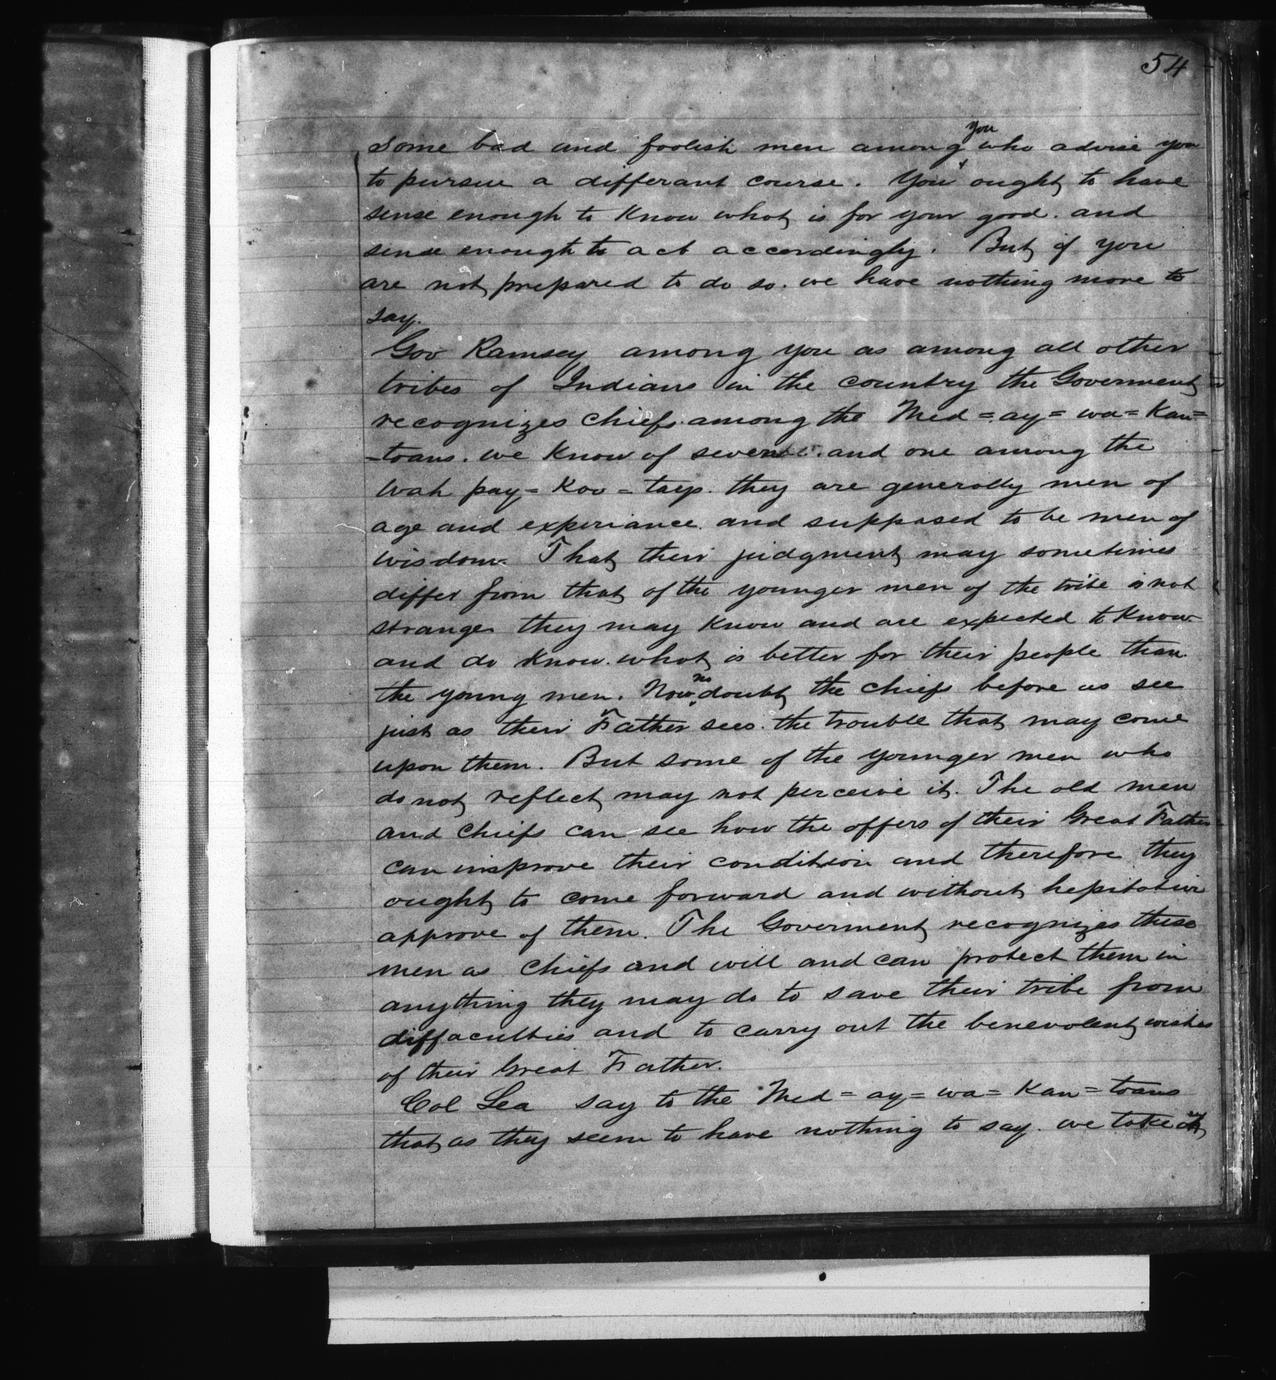 54
some bad and foolish men among you who advise you
to pursue a differant course. You ought to have
sense enough to know what is for your good. and
sense enough to act accordingly. But if you
are not prepared to do so. we have nothing more to
say.
Gov Ramsey among you as among all other
tribes of Indians in the country the Goverment
recognizes chiefs. among the Med=ay=wa=Kan=
-toans. we know of seven. and one among the
Wah pay=Koo=tays. they are generally men of
age and experiance. and supposed to be men of
wisdom. That their judgment may sometimes
differ from that of the younger men of the tribe is not
strange. they may know and are expected to know
and do know. what is better for their people than
the young men. Now no doubt the chiefs before us see
just as their Father sees. the trouble that may come
upon them. But some of the younger men who
do not reflect may not perceive it. The old men
and chiefs can see how the offers of their Great Father
can improve their condition and therefore they
ought to come forward and without hesitation
approve of them. The Goverment recognizes these
men as chiefs and will and can protect them in
anything they may do to save their tribe from
diffaculties and to carry out the benevolent wishes
of their Great Father.
Col Lea say to the Med=ay=wa=Kan=toans
that as they seem to have nothing to say. we take it